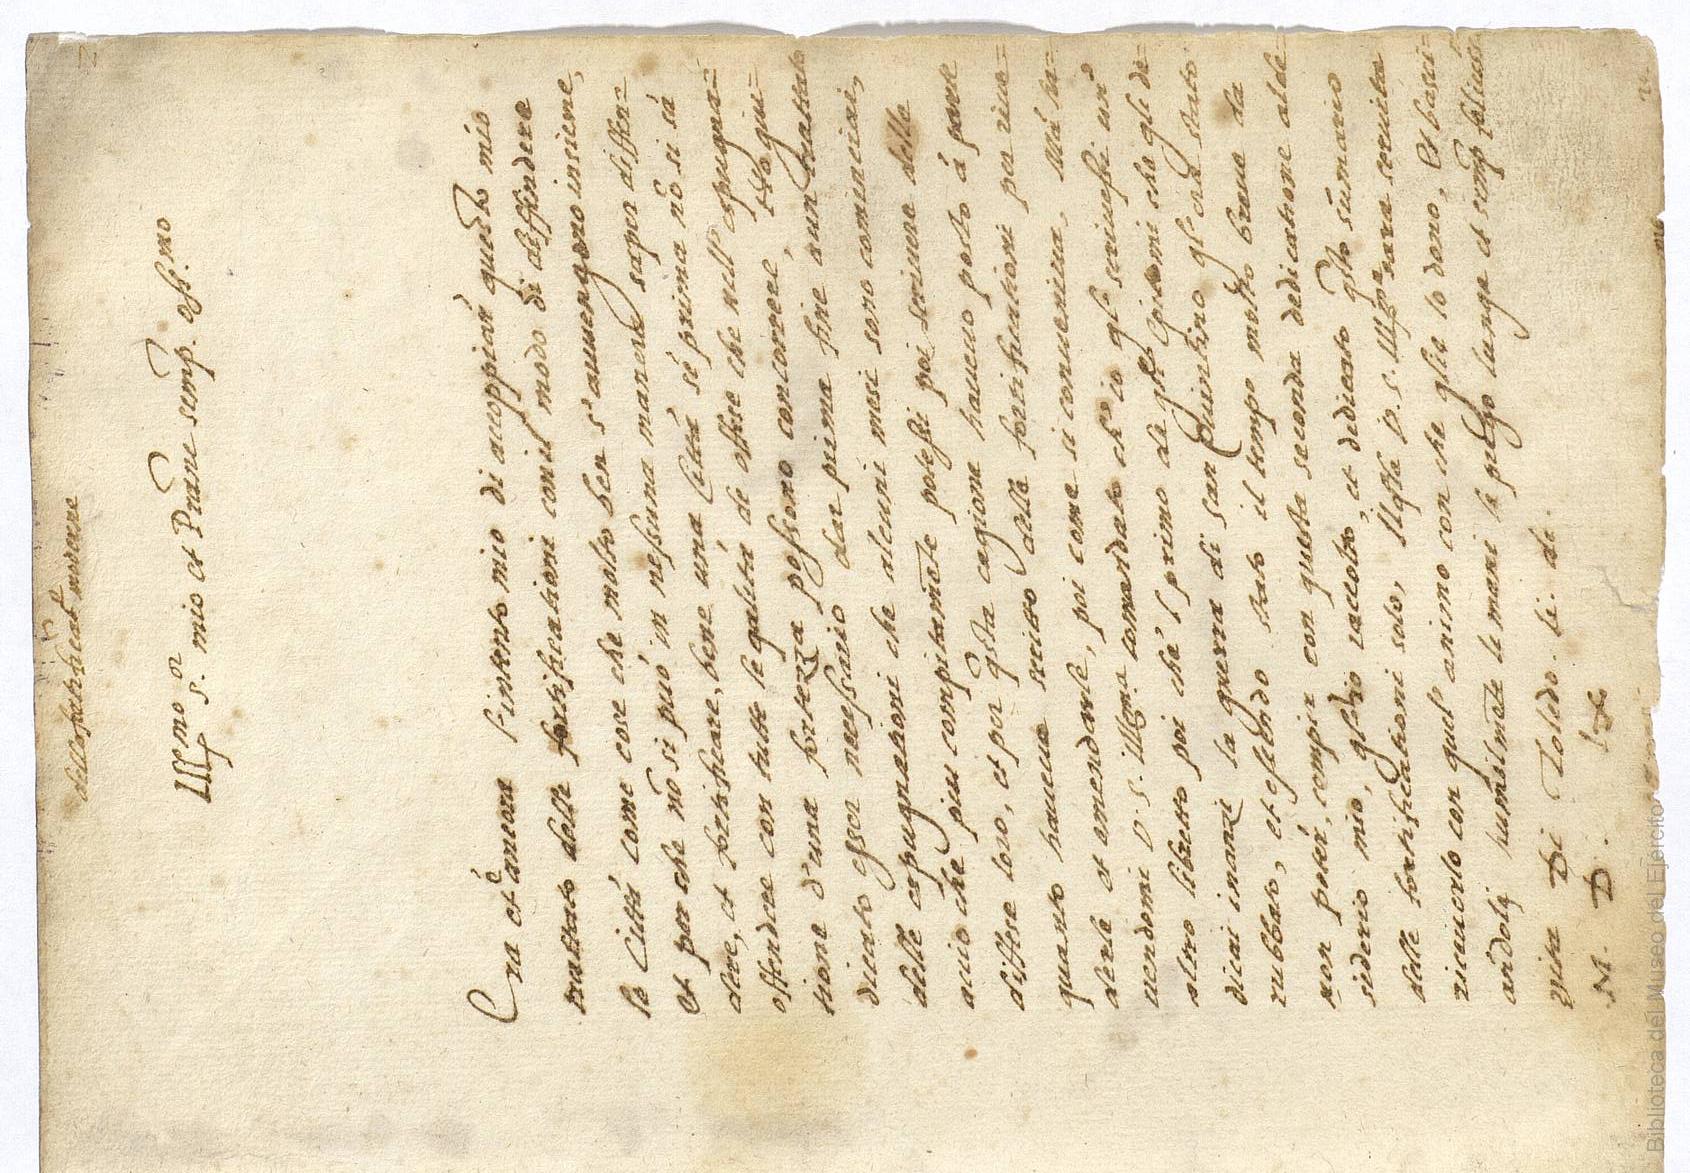 delle fortificat.i moderne
Ill.mo s.or mio et Prõne semp. oss.mo
Era et é ancora l'intento mio di accoppiar questo mio
trattato delle fortificationi con il modo di deffendere
le Cittá come cose che molto ben s'auuengono insieme,
Et per che nõ si può in nessuna maniera saper diffen=
dere, et fortificare, bene una Cittá se prima nõ si sá
offendere con tutte le qualitá de offese che nell' espugna=
tione d'una fortezza possono concorrere,
dicato esser necessario dar prima fine a un trattato
delle espugnationi che alcuni mesi sono cominciai,
acciò che piu compitamẽte potessi poi scriuere delle
diffese loro, et per q̃sta cagione haueuo posto á parte
quanto haueua scritto delle fortificationi per riue=
derle et emendarle, poi come si conueniua,
uendomi V. S. Ill.ma comandato ch'io gl' scriuessi un'
altro libretto poi che 'l primo de gli Epitomi che gli de=
dicai inanzi la guerra di san Quintino gl' era stato
rubbato, et essendo stato il tempo molto breue da
poter, compir con questa seconda dedicatione al de=
siderio mio, gl'hò raccolto, et dedicato q̃sto sũmario
delle fortificationi solo, V. S. Ill.ma sara seruita
riceuerlo con quel' animo con che glie lo dono, Et basci=
andoli humilmẽte le mani le prego lunga et semp. felice
uita Di Toledo. li. di.
M. D. LX
Biblioteca del Museo del Ejército